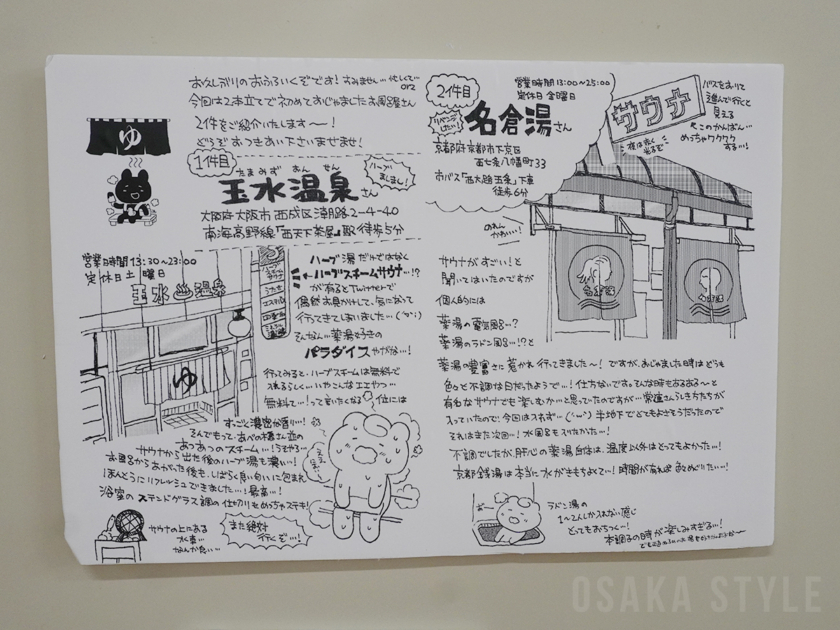 お久しぶりのおふろいくぞです！すみません…忙しくて… orz
今回は2本立てで初めておじゃましたお風呂屋さん
2件をご紹介いたします〜！
どうぞおつきあい下さいませませ！
ゆ
1件目
たまみず おんせん
玉水温泉さん
ハーブ ましまし！
大阪府大阪市西成区潮路2-4-40
南海高野線『西天下茶屋』駅徒歩5分
営業時間13:30~23:00
定休日土曜日
玉水♨温泉
ゆ
ハーブ湯だけではなく
ハーブスチームサウナ…!?
があるとTwitterで
偶然お見かけして、気になって
行ってきてしまいました…
そんなん…薬湯好きの
パラダイスやがな…！
行ってみると、ハーブスチームは無料で
入れるらしく…いやこんなええやつ…
無料て…！って言いたくなる位には
すっごく濃密な香り…！
そんでもって、あべの橋さん並の
あつあつのスチーム…！
サウナから出た後のハーブ湯も濃い…！
お風呂からあがった後も、しばらく良い匂いに包まれ
ほんとうにリフレッシュできました…！最高…！
浴室のステンドグラス調の仕切りもめっちゃステキ！
サウナの上にある
なんか良い…
また絶対
行くぞ…！
2件目
リベンジ したい！
名倉湯さん
営業時間13:00~25:00
定休日 金曜日
京都府京都市下京区
西七条八幡町33
市バス『西大路五条』下車
徒歩6分
サウナ
バスをおりて
進んで行くと
見える
このかんばん…
めっちゃワクワク
する…！
夜は光る
のれん
かわいい！
サウナがすごい！と
聞いてはいたのですが
個人的には
薬湯の電気風呂…？
薬湯のラドン風呂…!?と
薬湯の豊富さに惹かれ行ってきました〜！ですが、おじゃました時はどうも
色々と不調な日だったようで…！仕方ないです。そんな時もあるある〜と
有名なサウナでも楽しむか…と思ってたのですが…常連さんらしき方たちが
入っていたので今回は入れず…半地下でとてもよさそうだったので
それはまた次回…！水風呂も入りたかった…！
不調でしたが、肝心の薬湯自体は、温度以外はとってもよかった…！
京都銭湯は本当に水がきもちよくて…！時間が有れば色々めぐりたい…！
ラドン湯の
1〜2人しか入れない感じ
とってもおちつく〜！
本調子の時が楽しみすぎる…！
OSAKA STYLE